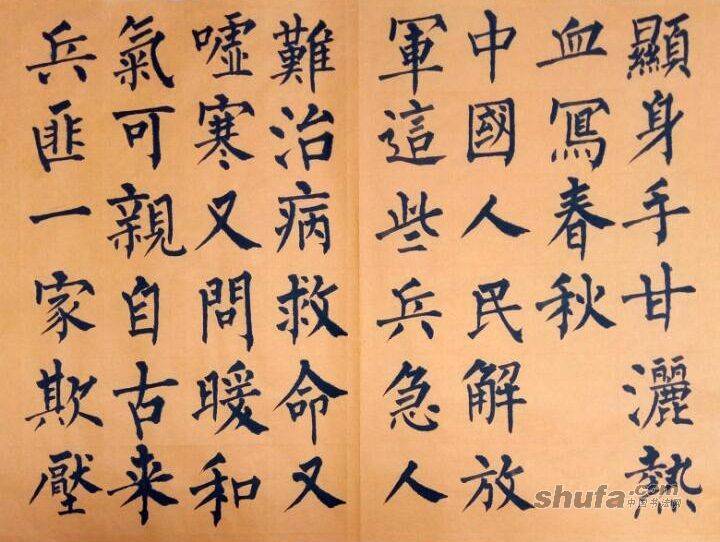 顯身手甘灑熱
血冩春秋
中國人民解放
軍這些兵急人
難治病救命又
噓寒又問暖和
氣可親自古来
兵匪一家欺壓
shufa.com
中国书法网